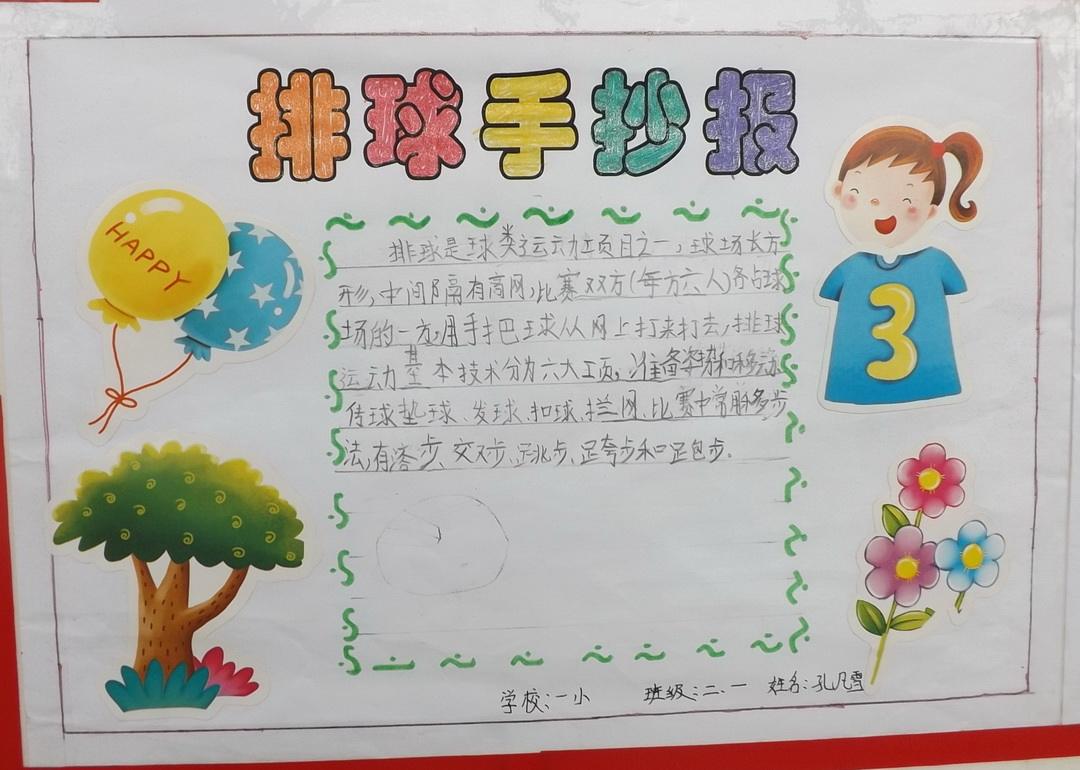 排球手抄报
HAPPY
3
排球是球类运动项目之一,球场长方
形,中间隔有高网,比赛双方(每方六人)各占球
场的一方,用手把球从网上打来打去,排球
运动基本技术分为六大项,准备姿势和移动
传球、垫球、发球、扣球、拦网,比赛中常用移步
法,有滑步、交叉步、跳步、跨步和跑步.
学校:一小 班级:二.一 姓名:孔凡雪